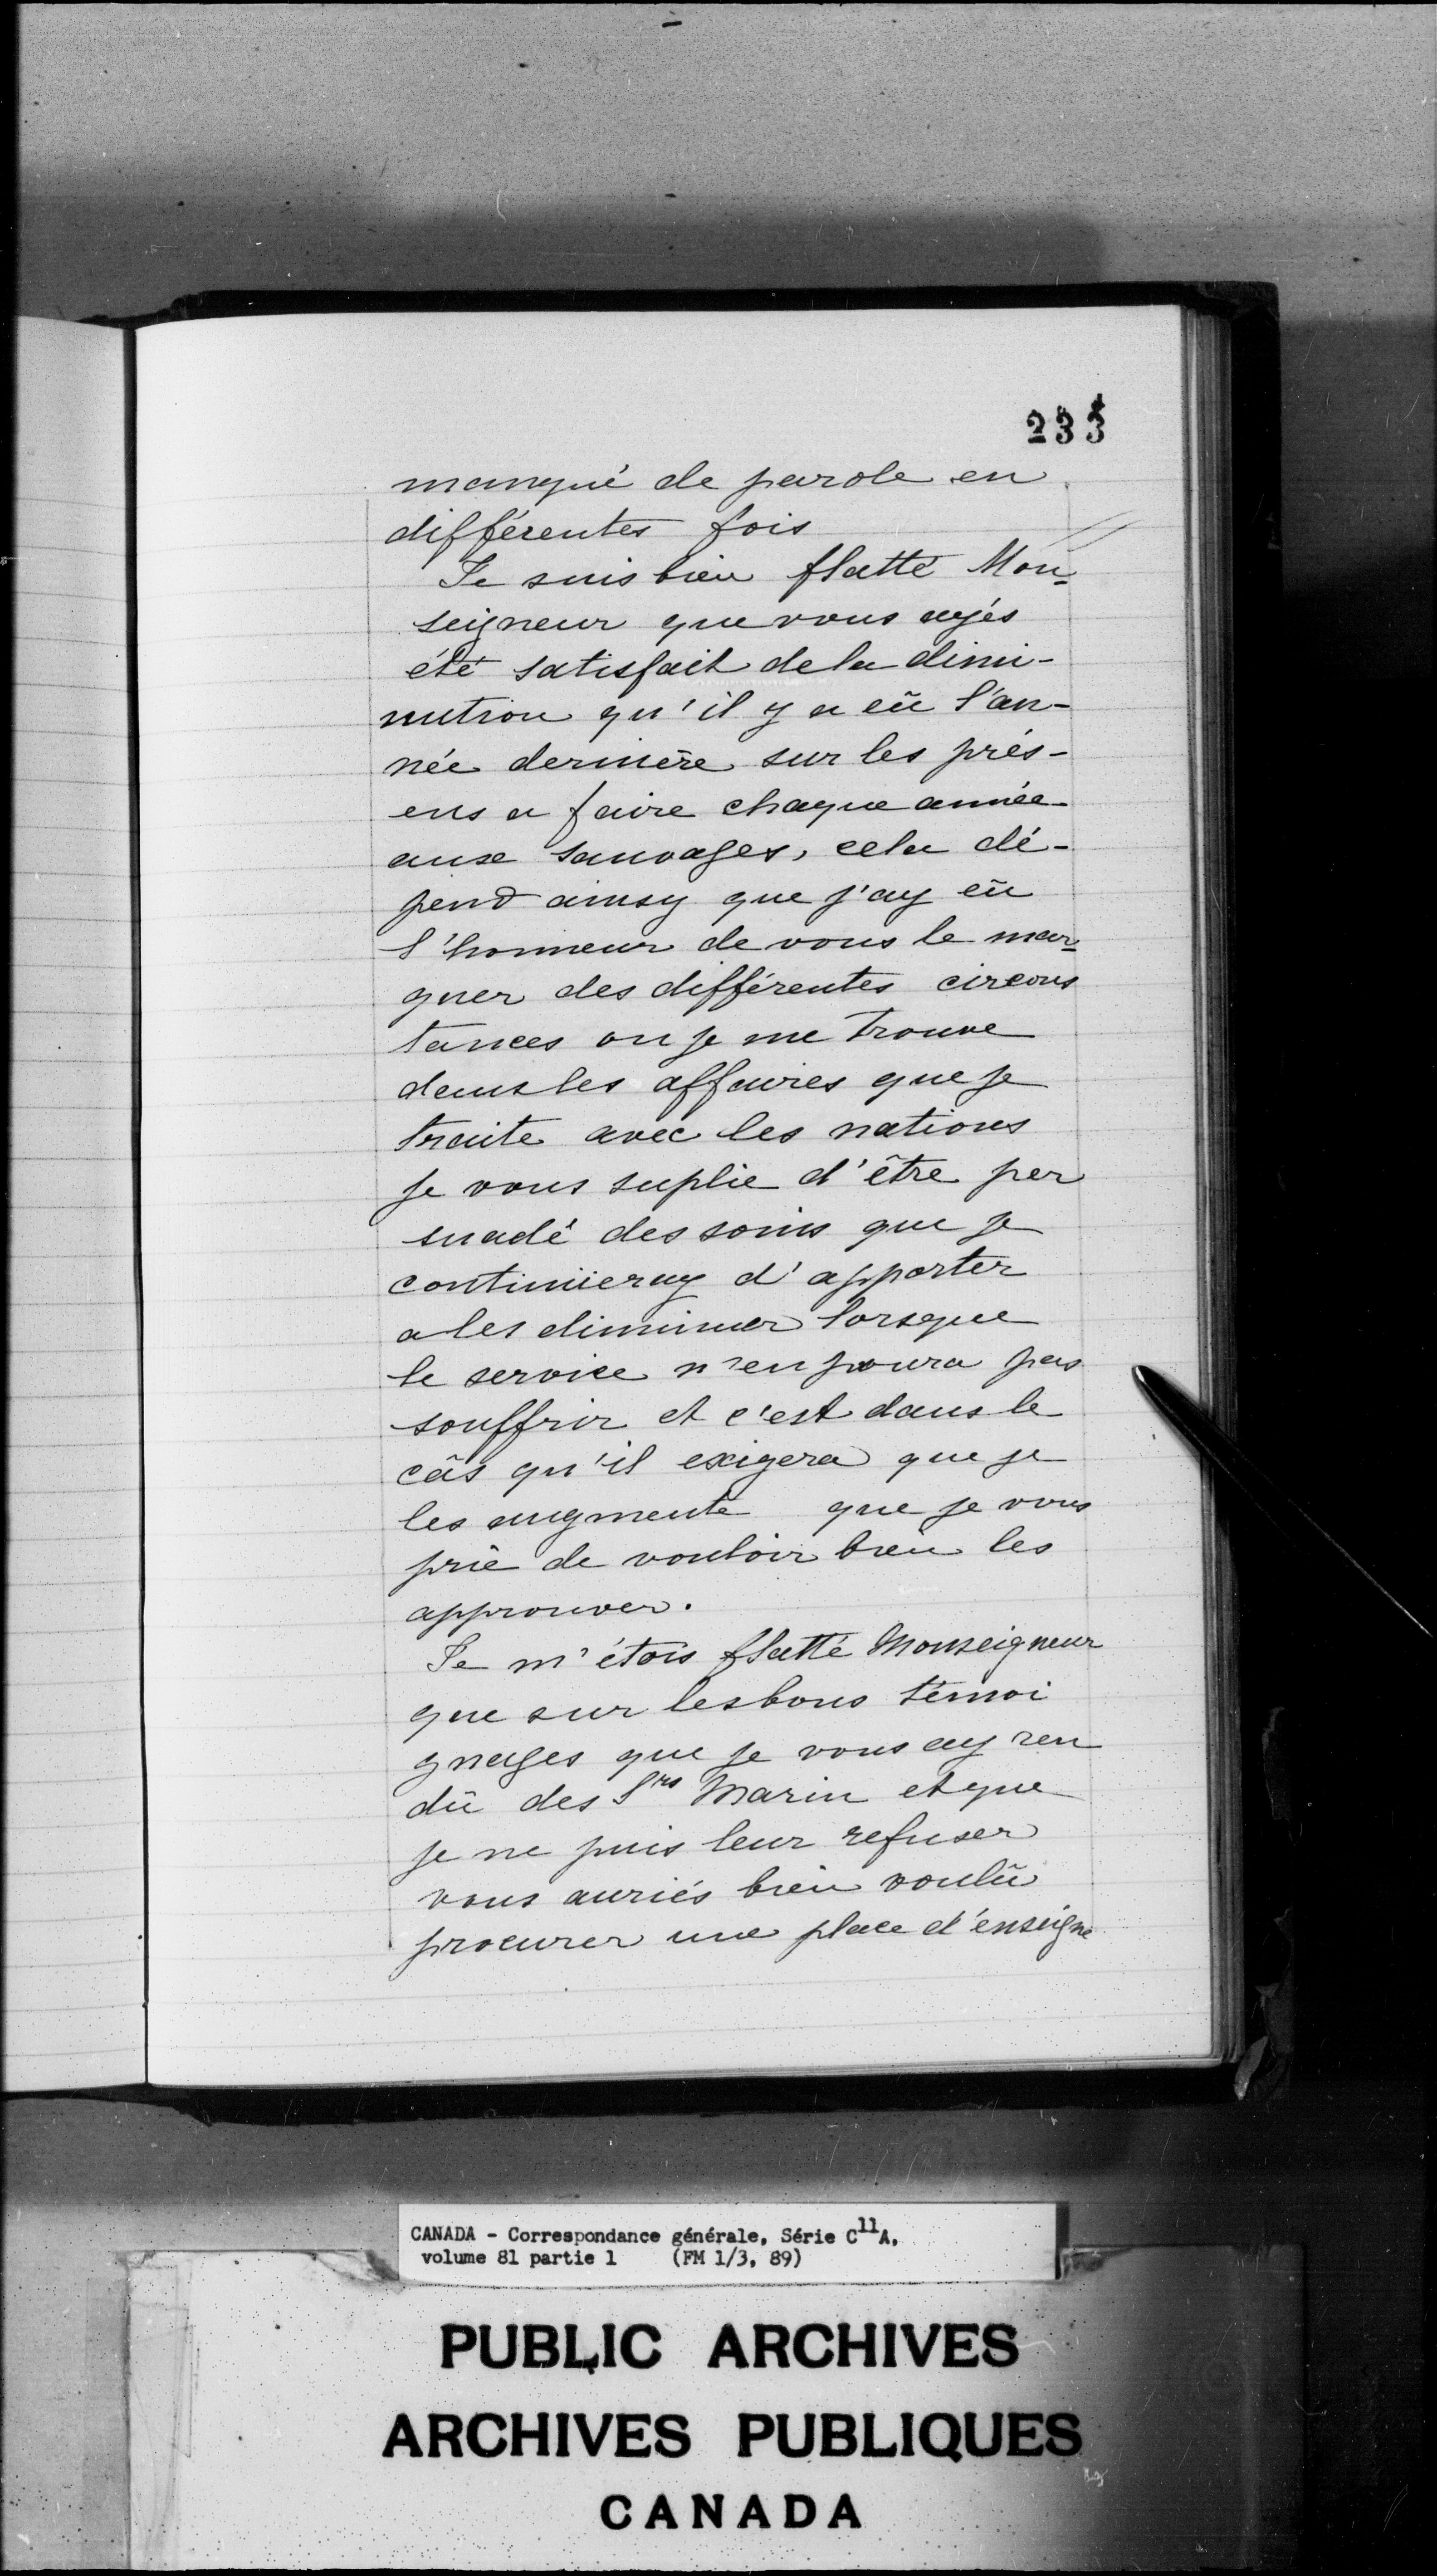 233
manqué de parole en
différentes fois
Je suis bien flatté Mon-
seigneur que vous ayés
été satisfait de la dimi-
nution qu'il y a eû l'an-
née derniere sur les prés-
ens a faire chaque année
aux sauvages, cela dé-
pend ainsy que j'ay eû
l'honneur de vous le mar-
quer des différentes circons
tances ou je me trouve
dans les affaires que je
traite avec les nations
je vous suplie d'être per
suadé des soins que je
continüeray d'apporter
a les diminuer lorsque
le service n'en poura pas
souffrir et c'est dans le
câs qu'il exigera que je
les augmente que je vous
prie de vouloir bien les
approuver.
Je m'étois flatté Monseigneur
que sur les bons témoi
gnages que je vous ay ren
dû des Srs Marin et que
je ne puis leur refuser
vous auriés bien voulû
procurer une place d'enseigne
CANADA - Correspondance générale, Série C11A,
volume 81 partie 1 (FM 1/3, 89)
PUBLIC ARCHIVES
ARCHIVES PUBLIQUES
CANADA